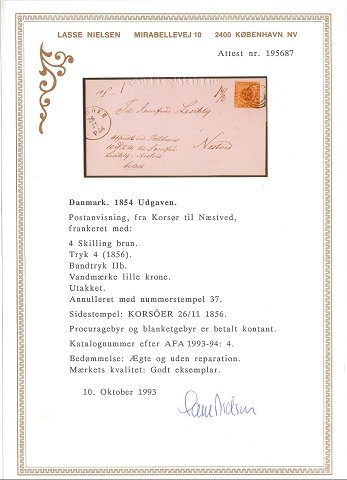 LASSE NIELSEN MIRABELLEVEJ 10 2400 KØBENHAVN NV
Attest nr. 195687
Til Jomfrue
Næstved
Danmark. 1854 Udgaven.
Postanvisning, fra Korsør til Næstved,
frankeret med:
4 Skilling brun.
Tryk 4 (1856).
Bundtryk IIb.
Vandmærke lille krone.
Utakket.
Annulleret med nummerstempel 37.
Sidestempel: KORSÖER 26/11 1856.
Procuragebyr og blanketgebyr er betalt kontant.
Katalognummer efter AFA 1993-94: 4.
Bedømmelse: Ægte og uden reparation.
Mærkets kvalitet: Godt eksemplar.
10. Oktober 1993
Lasse Nielsen